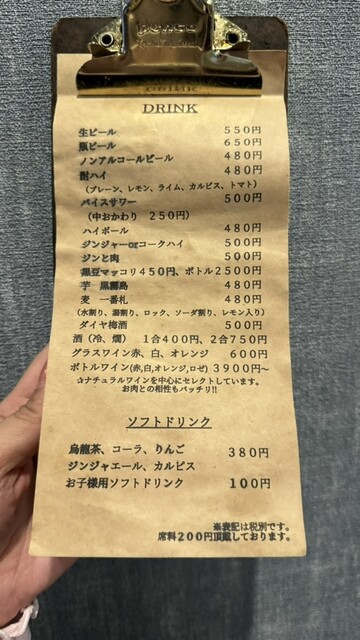 DRINK
生ビール 550円
瓶ビール 650円
ノンアルコールビール 480円
酎ハイ 480円
(プレーン、レモン、ライム、カルピス、トマト)
バイスサワー 500円
(中おかわり 250円)
ハイボール 480円
ジンジャーorコークハイ 500円
ジンと肉 500円
黒豆マッコリ450円、ボトル2500円
芋 黒霧島 480円
麦 一番札 480円
(水割り、湯割り、ロック、ソーダ割り、レモン入り)
ダイヤ梅酒 500円
酒(冷、燗) 1合400円、2合750円
グラスワイン赤、白、オレンジ 600円
ボトルワイン(赤,白,オレンジ,ロゼ) 3900円~
☆ナチュラルワインを中心にセレクトしています。
お肉との相性もバッチリ!!
ソフトドリンク
烏龍茶、コーラ、りんご 380円
ジンジャエール、カルピス
お子様用ソフトドリンク 100円
※表記は税別です。
席料200円頂戴しております。